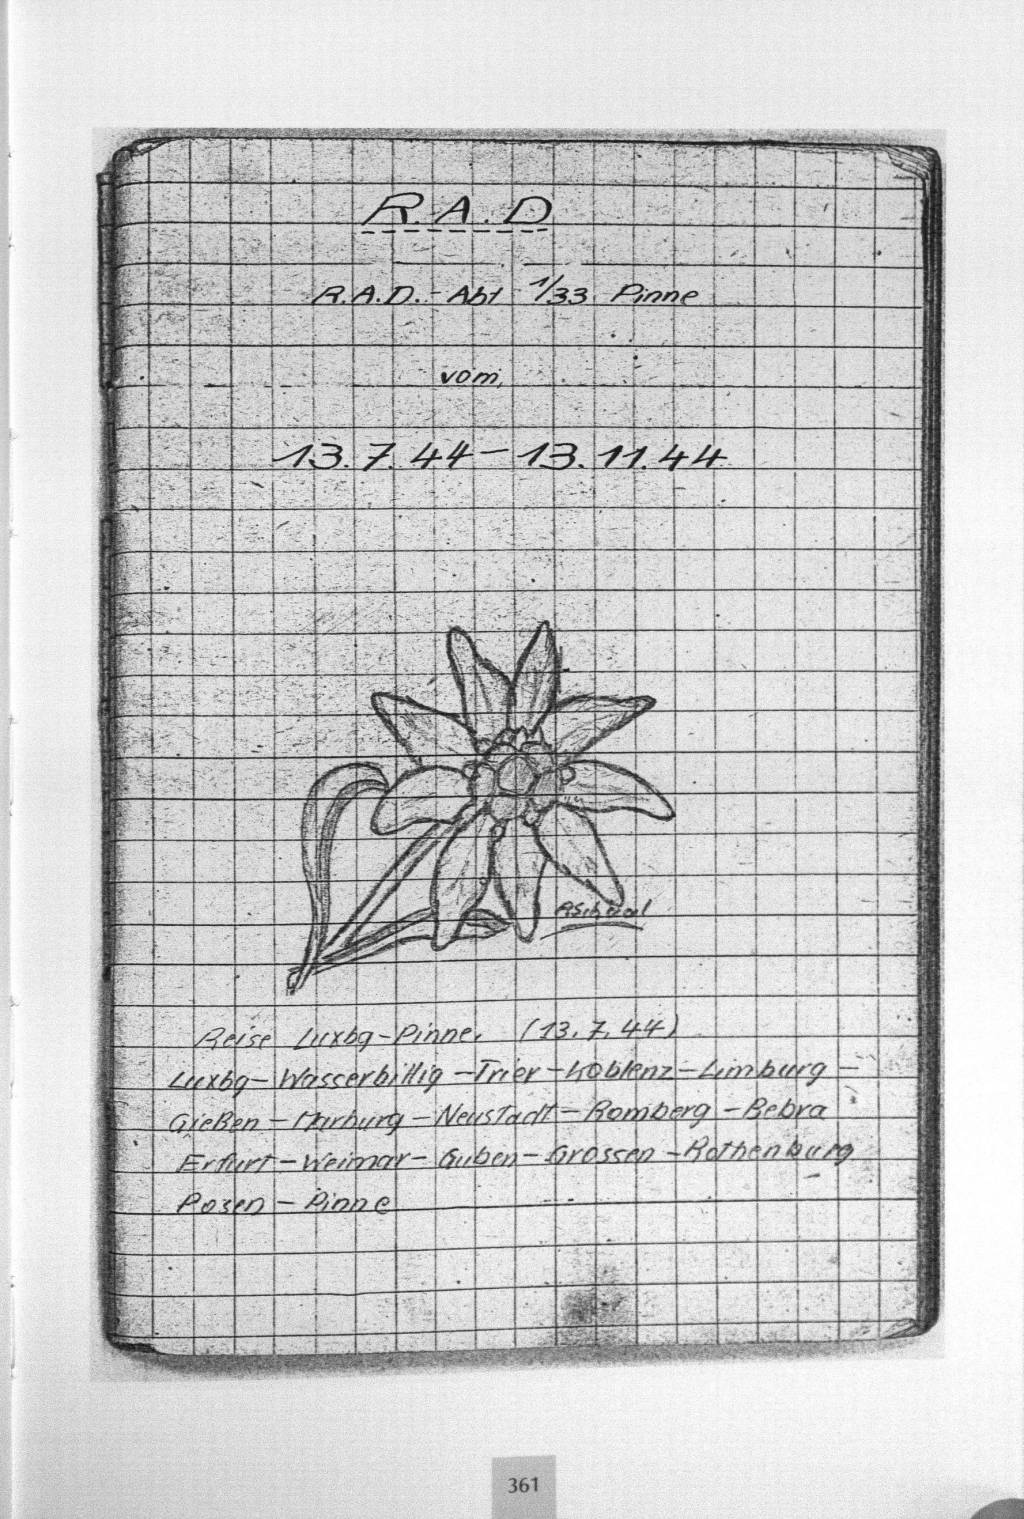 R.A.D
R.A.D.-Abt 1/33 Pinne
vom
13.7.44-13.11.44
Reise Luxbg-Pinne. (13.7.44)
Luxbg-Wasserbillig-Trier-Koblenz-Limburg-
Gießen-Marburg-Neustadt-Romberg-Bebra
Erfurt-Weimar-Guben-Grossen-Rothenburg
Posen-Pinne
361